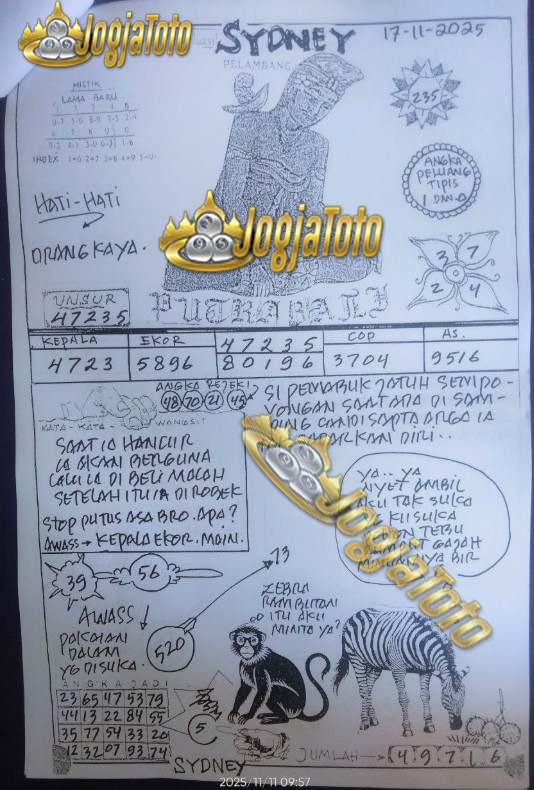 JogjaToto
SYDNEY
17-11-2025
PELAMBANG
MISTIK
LAMA BARU
INDEX 1=6 2=7 3=8 4=9 5=0
235
ANGKA
PELUANG
TIPIS
HATI-HATI
ORANG KAYA.
JogjaToto
3 7
2 4
UNSUR
47235
PUTRA BALI
KEPALA EKOR 47235 COP AS.
4723 5896 80196 3704 9516
ANGKA REJEKI
48 70 21 45
KATA - KATA - WANGSIT
SI PEMABUK JATUH SEMPO-
YONGAN SAAT ADA DI SAM-
PING CANDI SAPTA ARGA IA
DIRI..
SAAT IA HANCUR
IA AKAN BERGUNA
LALU IA DI BELI MALAH
SETELAH ITU IA DI ROBEK
STOP PUTUS ASA BRO. APA?
AWASS → KEPALA EKOR. MAIN.
YA.. YA
AMBIL
AKU TAK SUKA
TEBU
GAJAH
BIR
JogjaToto
39
56
73
AWASS!
PAKAIAN
DALAM
YG DISUKA.
520
ZEBRA
RAMBUTAN
ITU AKU
MINTA YA?
ANGKA JADI
23 65 47 53 79
44 13 22 84 55
35 77 54 33 20
12 32 07 93 74
5
SYDNEY
JUMLAH → 4 9 7 1 6
2025/11/11 09:57